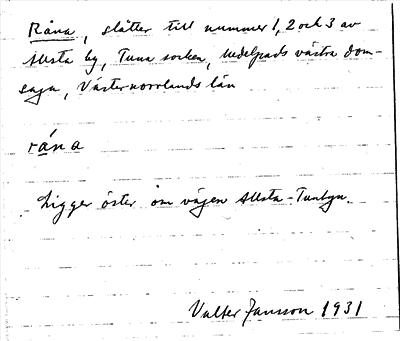 Råna, slåtter till nummer 1, 2 och 3 av
Allsta by, Tuna socken, Medelpads västra dom-
saga, Västernorrlands län
råna
Ligger öster om vägen Allsta-Tunbyn.
Valter Jansson 1931